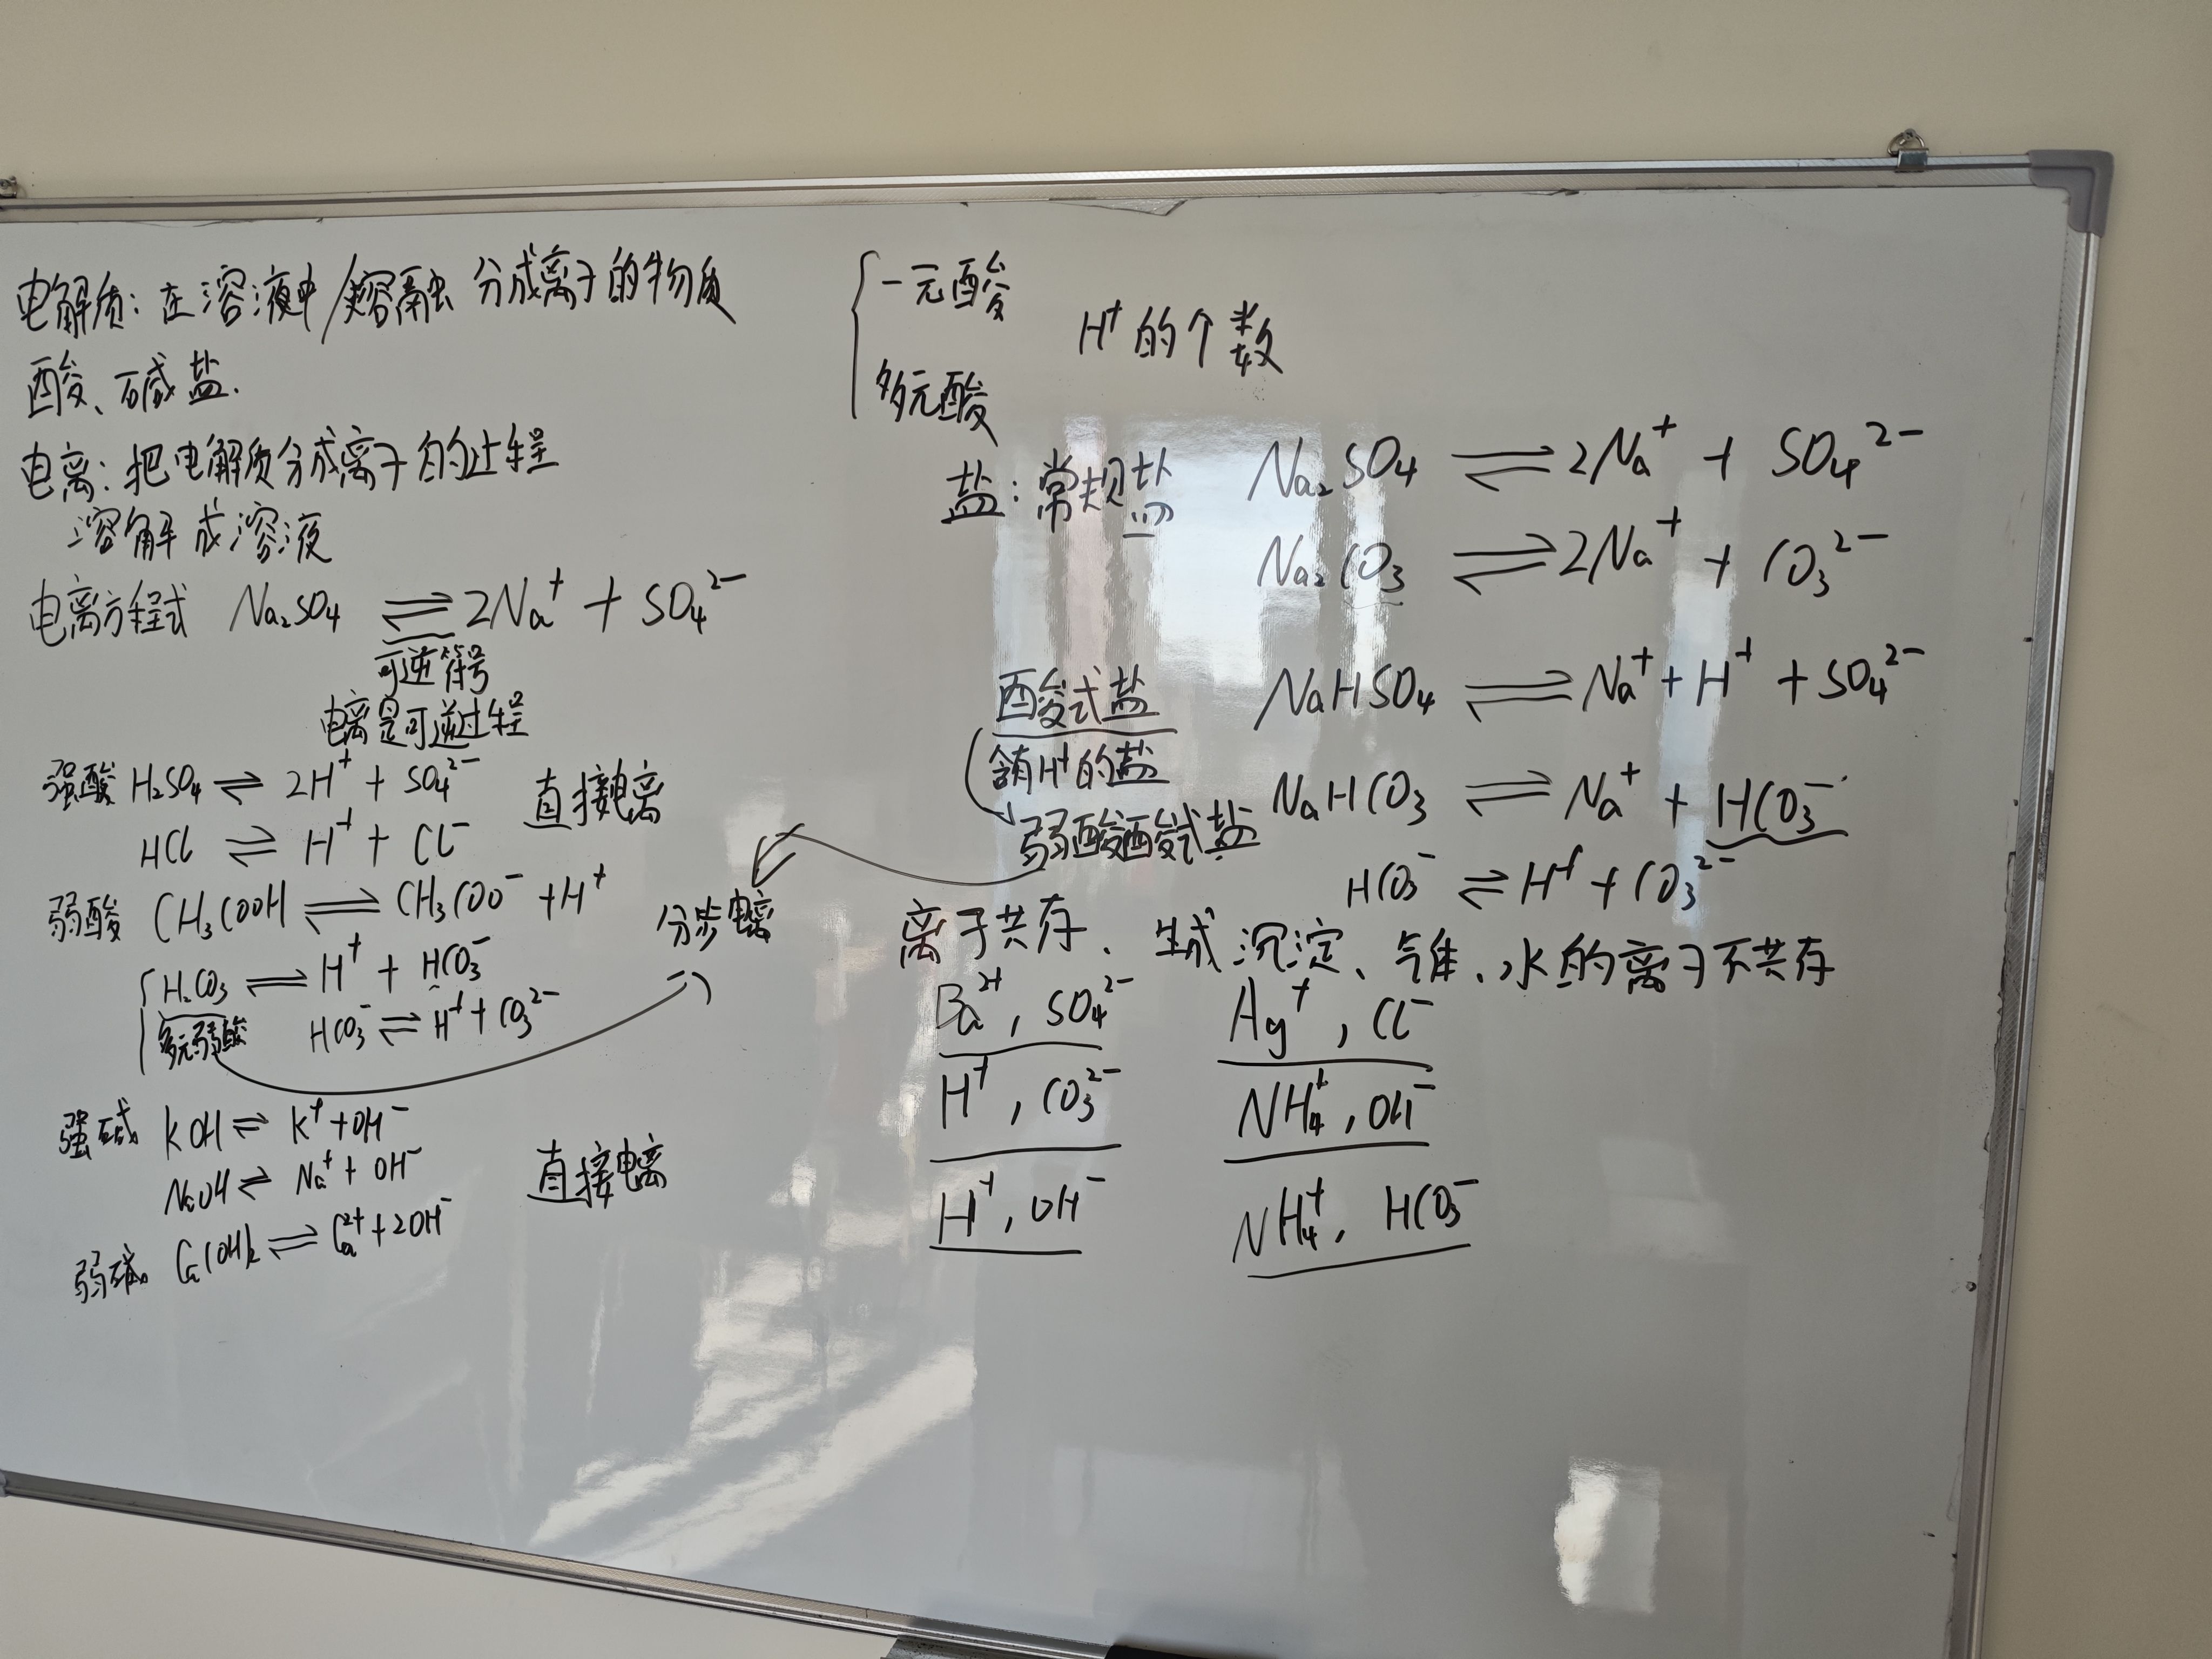 电解质：在溶液中/熔融 分成离子的物质
酸、碱盐.
电离：把电解质分成离子的过程
溶解成溶液
电离方程式 Na₂SO₄ ⇌ 2Na⁺ + SO₄²⁻
可逆符号
电离是可逆过程
强酸 H₂SO₄ ⇌ 2H⁺ + SO₄²⁻ 直接电离
HCl ⇌ H⁺ + Cl⁻
弱酸 CH₃COOH ⇌ CH₃COO⁻ + H⁺
分步电离
H₂CO₃ ⇌ H⁺ + HCO₃⁻
多元弱酸 HCO₃⁻ ⇌ H⁺ + CO₃²⁻
强碱 KOH ⇌ K⁺ + OH⁻
NaOH ⇌ Na⁺ + OH⁻ 直接电离
弱碱 Ca(OH)₂ ⇌ Ca²⁺ + 2OH⁻
一元酸
H⁺的个数
多元酸
盐：常规盐 Na₂SO₄ ⇌ 2Na⁺ + SO₄²⁻
Na₂CO₃ ⇌ 2Na⁺ + CO₃²⁻
酸式盐 NaHSO₄ ⇌ Na⁺ + H⁺ + SO₄²⁻
含有H⁺的盐
弱酸酸式盐 NaHCO₃ ⇌ Na⁺ + HCO₃⁻
HCO₃⁻ ⇌ H⁺ + CO₃²⁻
离子共存、生成沉淀、气体、水的离子不共存
Ba²⁺, SO₄²⁻ Ag⁺, Cl⁻
H⁺, CO₃²⁻ NH₄⁺, OH⁻
H⁺, OH⁻ NH₄⁺, HCO₃⁻